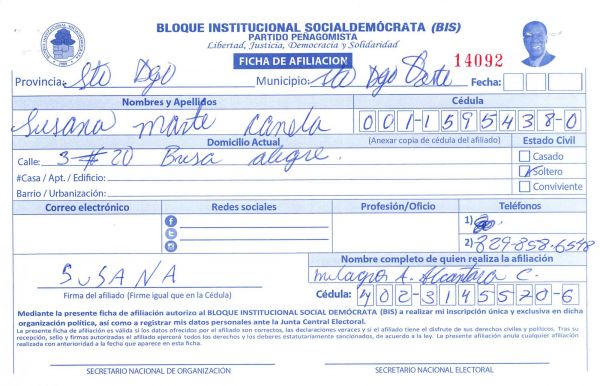 BLOQUE INSTITUCIONAL SOCIALDEMÓCRATA (BIS)
PARTIDO PEÑAGOMISTA
Libertad, Justicia, Democracia y Solidaridad
FICHA DE AFILIACION
14092
Provincia: Sto Dgo Municipio: Sto Dgo Oeste Fecha:
Nombres y Apellidos Cédula
Susana Marte Canela 001-1595438-0
Domicilio Actual (Anexar copia de cédula del afiliado) Estado Civil
Calle: 3 # 20 Buena alegre. Casado
#Casa / Apt. / Edificio: Soltero
Barrio / Urbanización: Conviviente
Correo electrónico Redes sociales Profesión/Oficio Teléfonos
1)
2) 829-858-6548
Nombre completo de quien realiza la afiliación
SUSANA Milagros A. Alcantara C.
Firma del afiliado (Firme igual que en la Cédula) Cédula: 402-3145570-6
Mediante la presente ficha de afiliación autorizo al BLOQUE INSTITUCIONAL SOCIAL DEMÓCRATA (BIS) a realizar mi inscripción única y exclusiva en dicha
organización política, así como a registrar mis datos personales ante la Junta Central Electoral.
La presente ficha de afiliación es válida si los datos ofrecidos por el afiliado son correctos, las declaraciones veraces y si el afiliado tiene el disfrute de sus derechos civiles y políticos. Tras su
recepción, sello y firmas autorizadas el afiliado ejercerá todos los derechos y los deberes estatutariamente sancionados, de acuerdo a la ley. La presente afiliación anula cualquier afiliación
realizada con anterioridad a la fecha que aparece en esta ficha.
SECRETARIO NACIONAL DE ORGANIZACIÓN SECRETARIO NACIONAL ELECTORAL